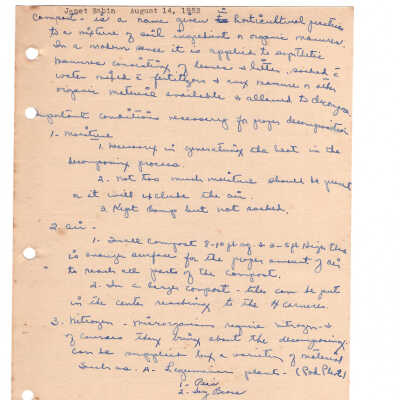 Janet Robin August 14, 1952
Compost - is a name given to horticultural practice
to a mixture of soil ingredient & organic manures.
In a modern sense it is applied to synthetic
manures consisting of leaves & litter soaked c̄
water mixed c̄ fertilizers & any manure or other
organic material available & allowed to decompose
Important conditions necessary for proper decomposition
1. moisture
1. Necessary in generating the heat in the
decomposing process.
2. not too much moisture should be present
or it will exclude the air.
3. Kept damp but not soaked.
2. air -
1. Small compost 8-10 ft sq. & 3-5 ft high there
is enough surface for the proper amount of air
to reach all parts of the compost.
2. In a large compost - tiles can be put
in the center reaching to the 4 corners.
3. Nitrogen - microorganisms require nitrogen &
of course they bring about the decomposing.
can be supplied by a variety of material
such as. A - Leguminous plants - (Pod
1 - Peas
2 - Soy Beans